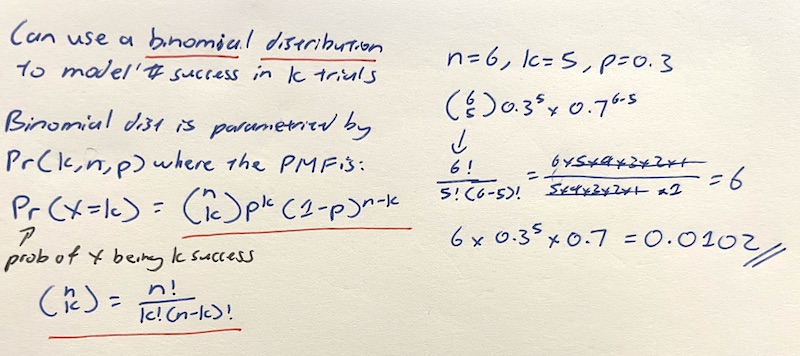 Can use a binomial distribution
to model # success in k trials
Binomial dist is parametrized by
Pr(k,n,p) where the PMF is:
Pr(X=k) = (n k) p^k (1-p)^n-k
↑
prob of x being k success
(n k) = n! / k!(n-k)!
n=6, k=5, p=0.3
(6 5) 0.3^5 x 0.7^6-5
↓
6! / 5!(6-5)! = 6x5x4x3x2x1 / 5x4x3x2x1 x1 = 6
6 x 0.3^5 x 0.7 = 0.0102 //